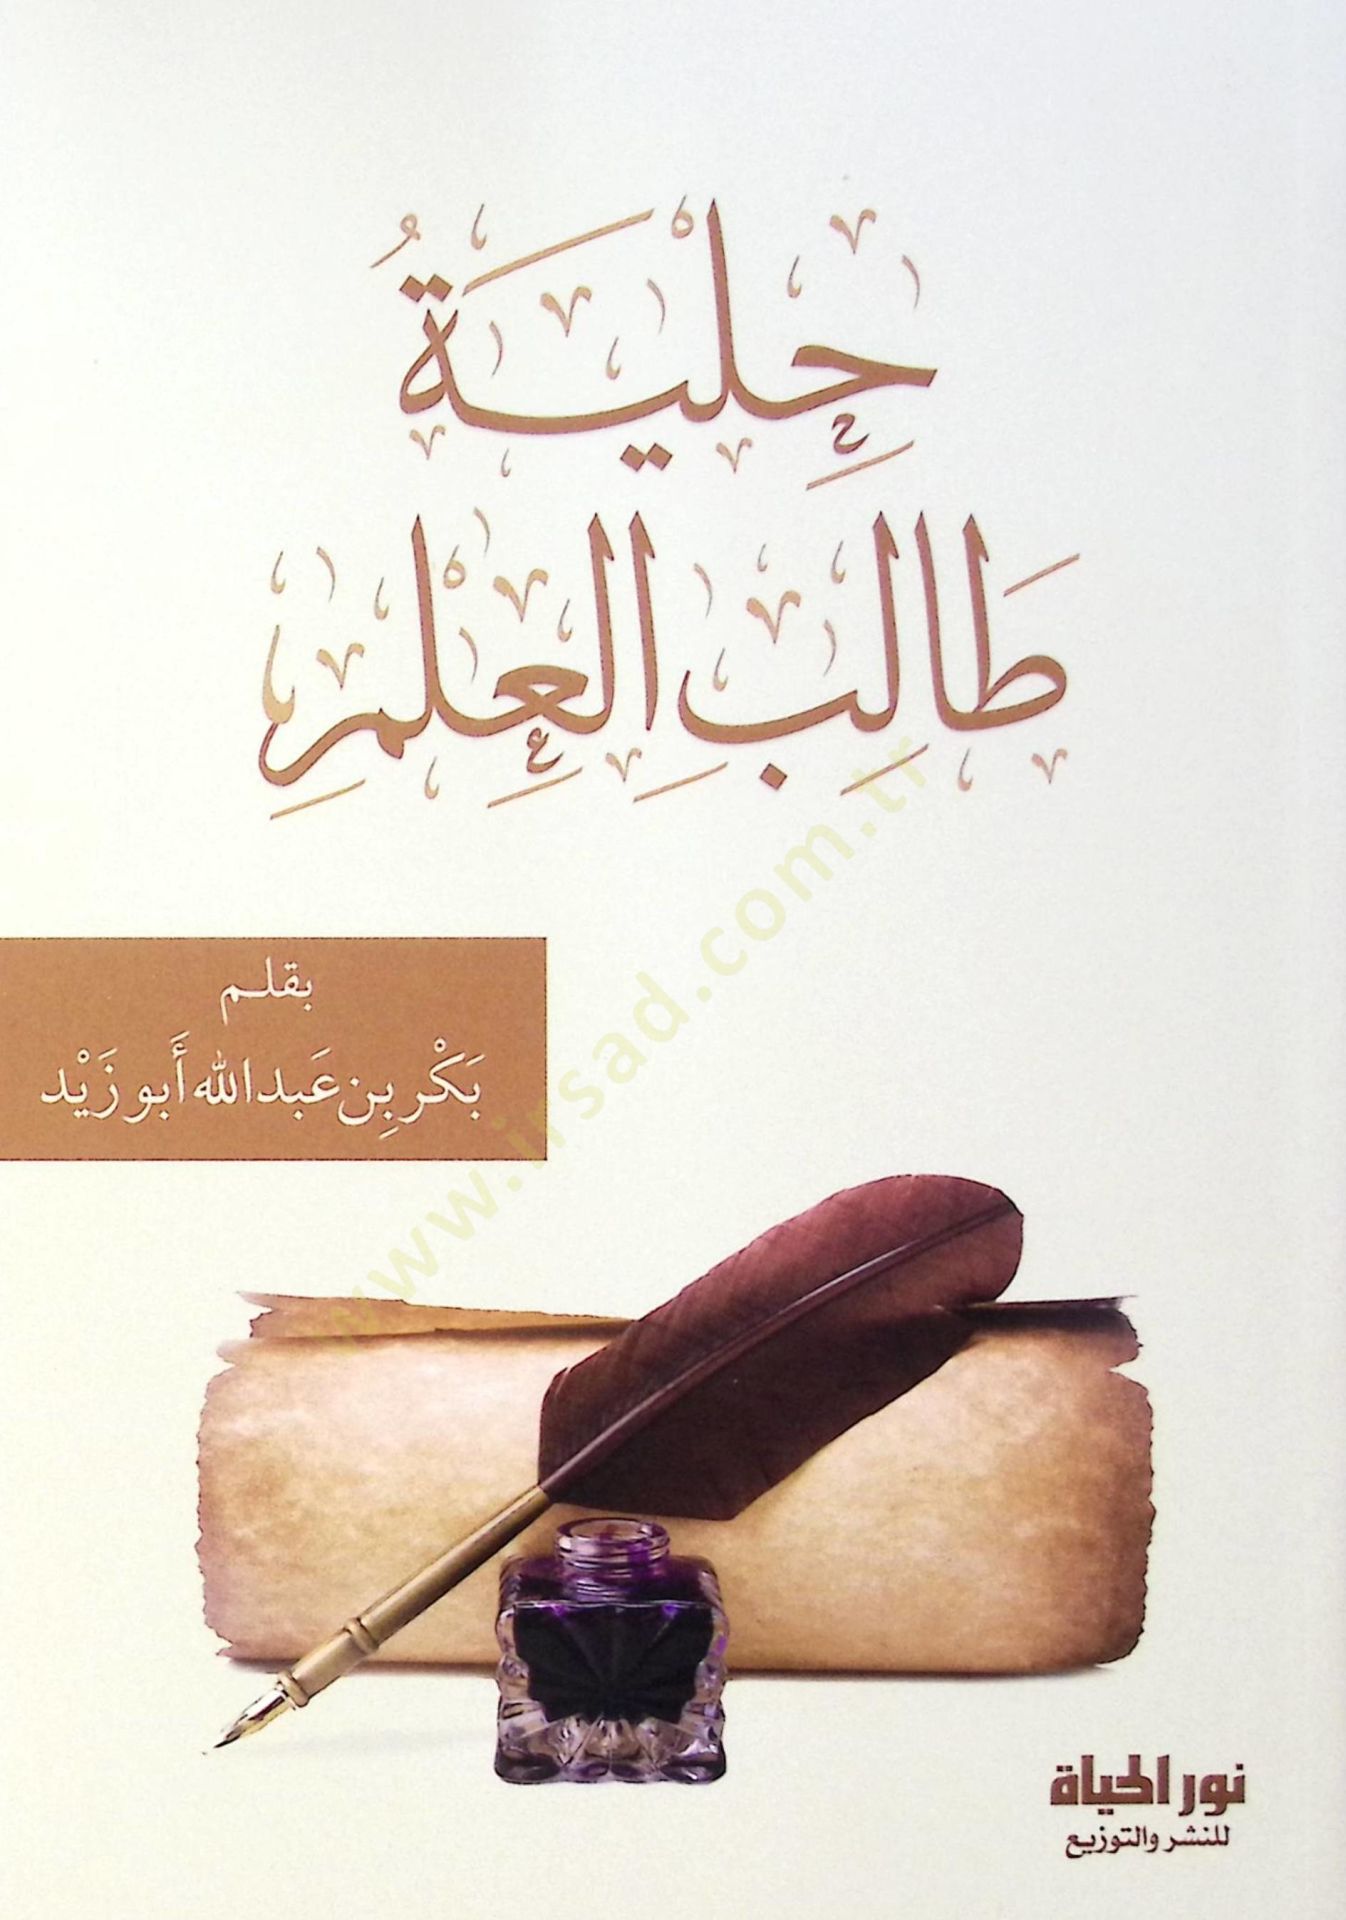 حِلْيَةُ
طَالِبِ العِلْمِ
بقلم
بَكْر بِن عَبد الله أَبو زَيْد
www.irsad.com.tr
نور الحياة
للنشر والتوزيع